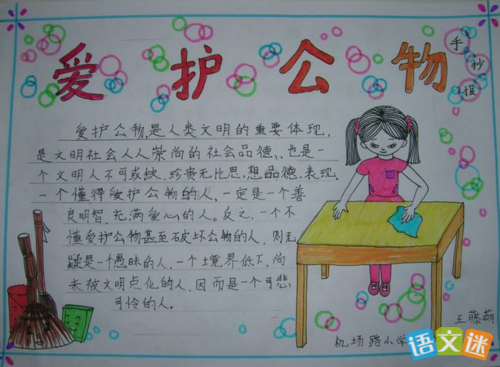 爱护公物
手抄报
爱护公物,是人类文明的重要体现,
是文明社会人人崇尚的社会品德,也是一
个文明人不可或缺,珍贵无比思想品德,表现。
一个懂得爱护公物的人,一定是一个善
良明智,充满爱心的人。反之,一个不
懂爱护公物甚至破坏公物的人,则无
疑是一个愚昧的人,一个境界低下,尚
未被文明点化的人,因而是一个可悲
可怜的人。
机场路小学
语文迷